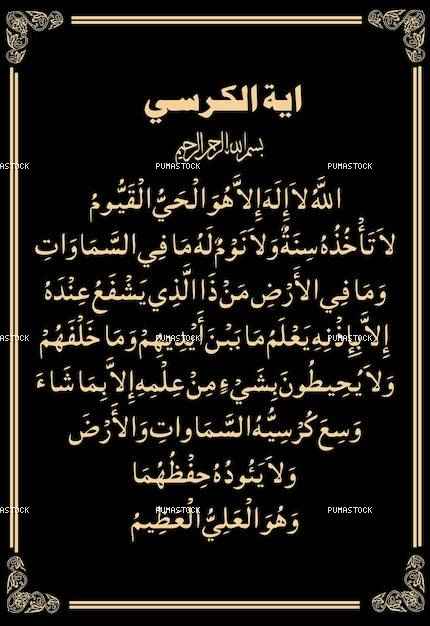 اية الكرسي
بسم الله الرحمن الرحيم
اللَّهُ لاَ إِلَهَ إِلاَّ هُوَ الْحَيُّ الْقَيُّومُ
لاَ تَأْخُذُهُ سِنَةٌ وَلاَ نَوْمٌ لَهُ مَا فِي السَّمَاوَاتِ
وَمَا فِي الأَرْضِ مَنْ ذَا الَّذِي يَشْفَعُ عِنْدَهُ
إِلاَّ بِإِذْنِهِ يَعْلَمُ مَا بَيْنَ أَيْدِيهِمْ وَمَا خَلْفَهُمْ
وَلاَ يُحِيطُونَ بِشَيْءٍ مِنْ عِلْمِهِ إِلاَّ بِمَا شَاءَ
وَسِعَ كُرْسِيُّهُ السَّمَاواتِ وَالأَرْضَ
وَلاَ يَئُودُهُ حِفْظُهُمَا
وَهُوَ الْعَلِيُّ الْعَظِيمُ
PUMASTOCK
PUMASTOCK
PUMASTOCK
PUMASTOCK
PUMASTOCK
PUMASTOCK